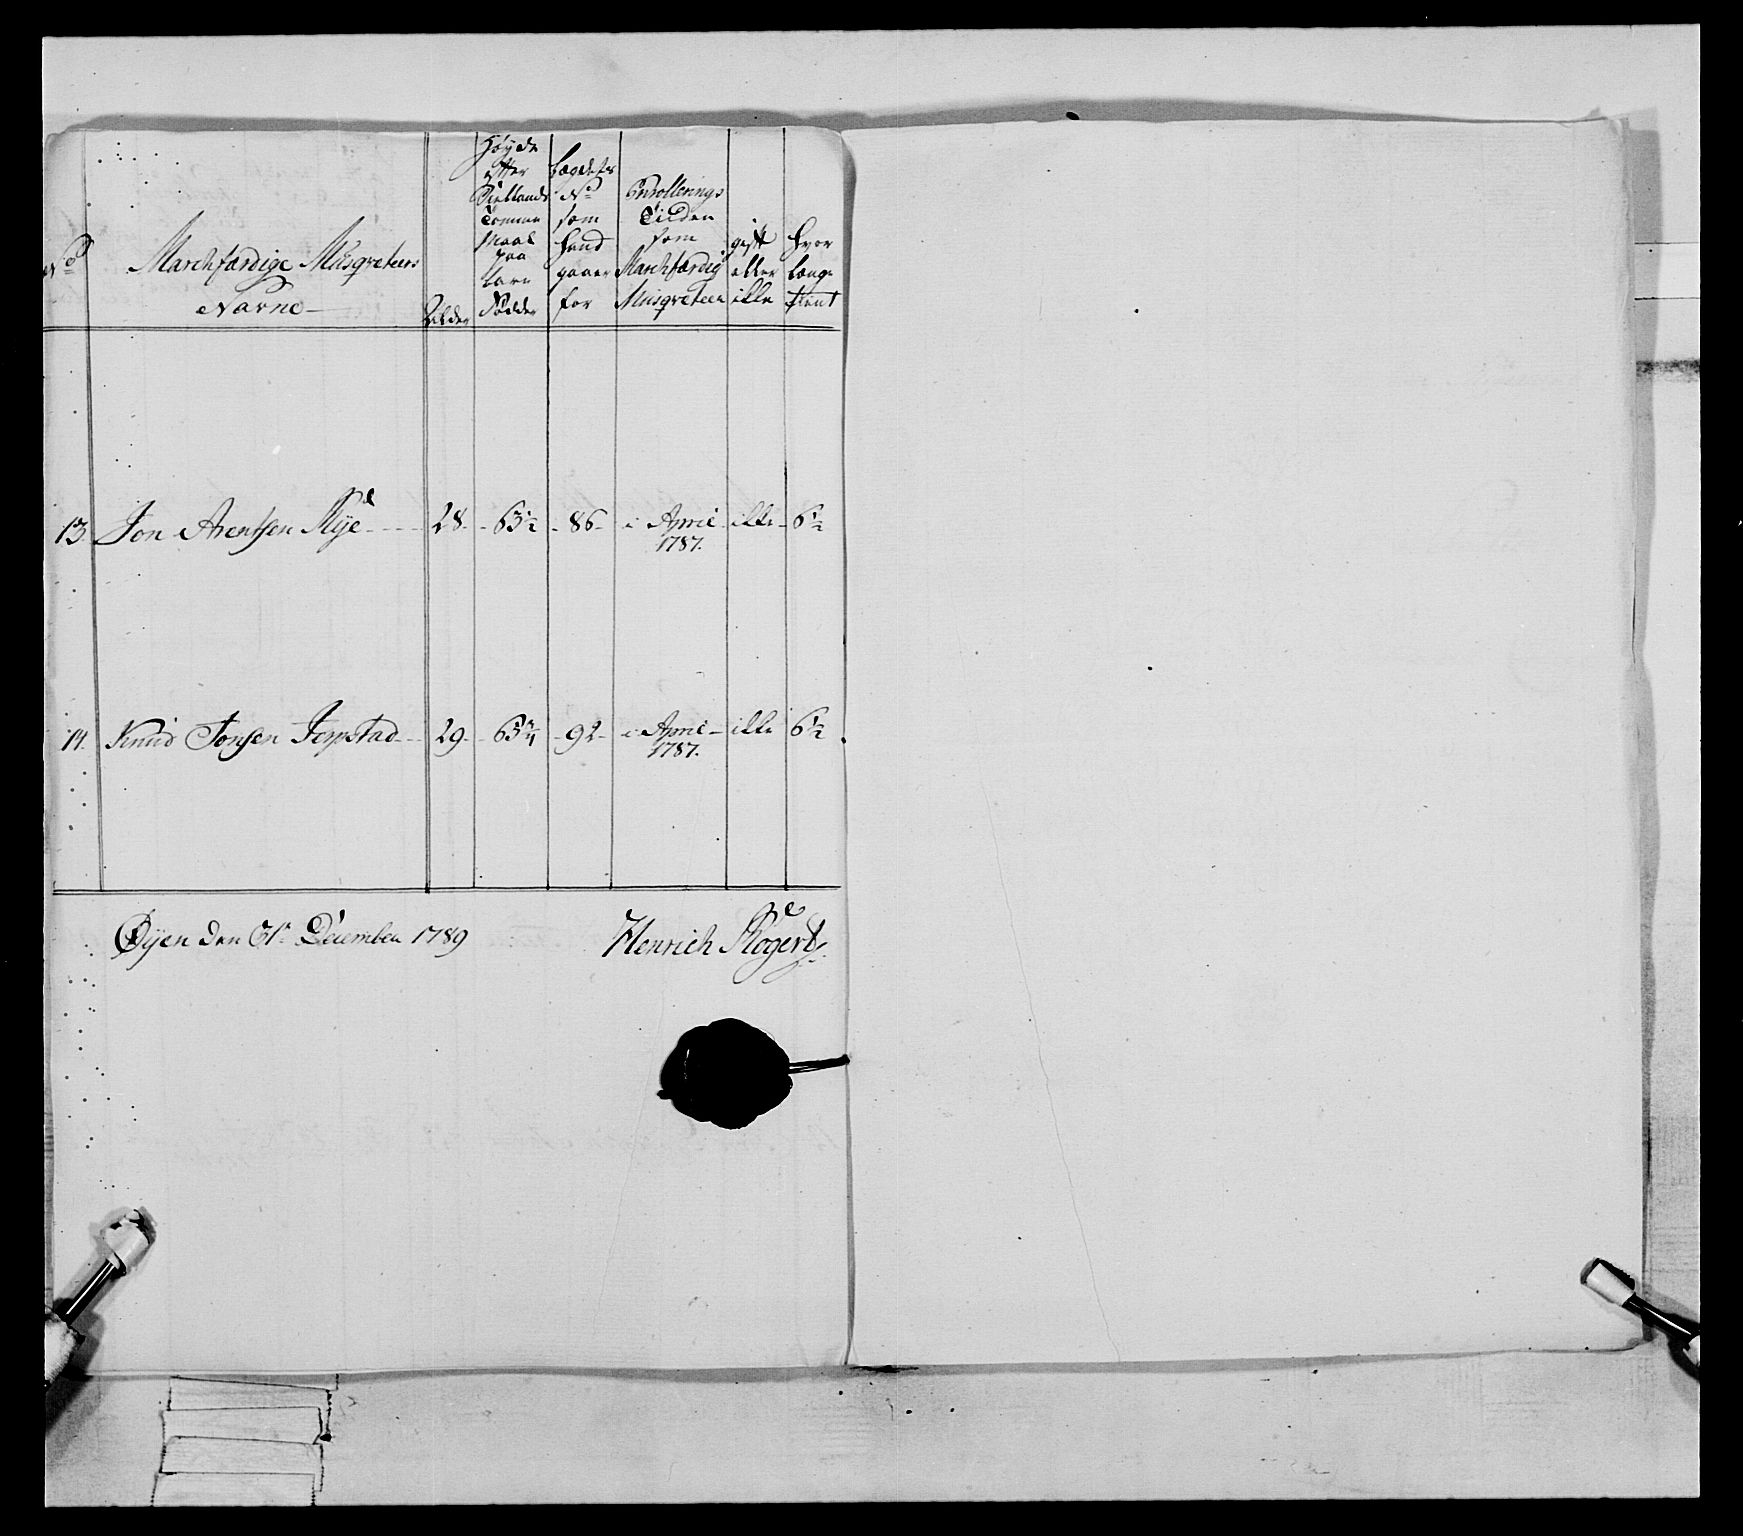 No
Marchfærdige Musqveteers
Navne
Alder
Høyde
efter
Siellands
Tomme
Maal
paa
bare
Fødder
Lægdets
No
som
hand
gaaer
for
Enrollerings
Tiiden
som
Marchfærdig
Musqveteer
gift
eller
ikke
hvor
længe
tient
13 Jon Arentsen Mye 28 63½ 86 i April ikke 6½
1787.
14. Knud Jonsen Jerpstad 29 63¾ 92 i April ikke 6½
1787.
Øyen den 31te December 1789
Henrich Rogert